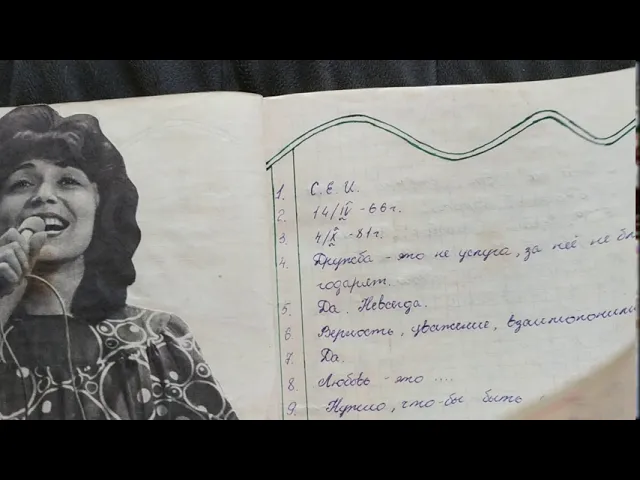 1. С. Е. И.
2. 14/IV -66г.
3. 4/X -81г.
4. Дружба - это не услуга, за неё не бла
годарят.
5. Да. Невсегда.
6. Верность, уважение, взаимопонима
7. Да.
8. Любовь - это ....
9. Нужно, что-бы быть